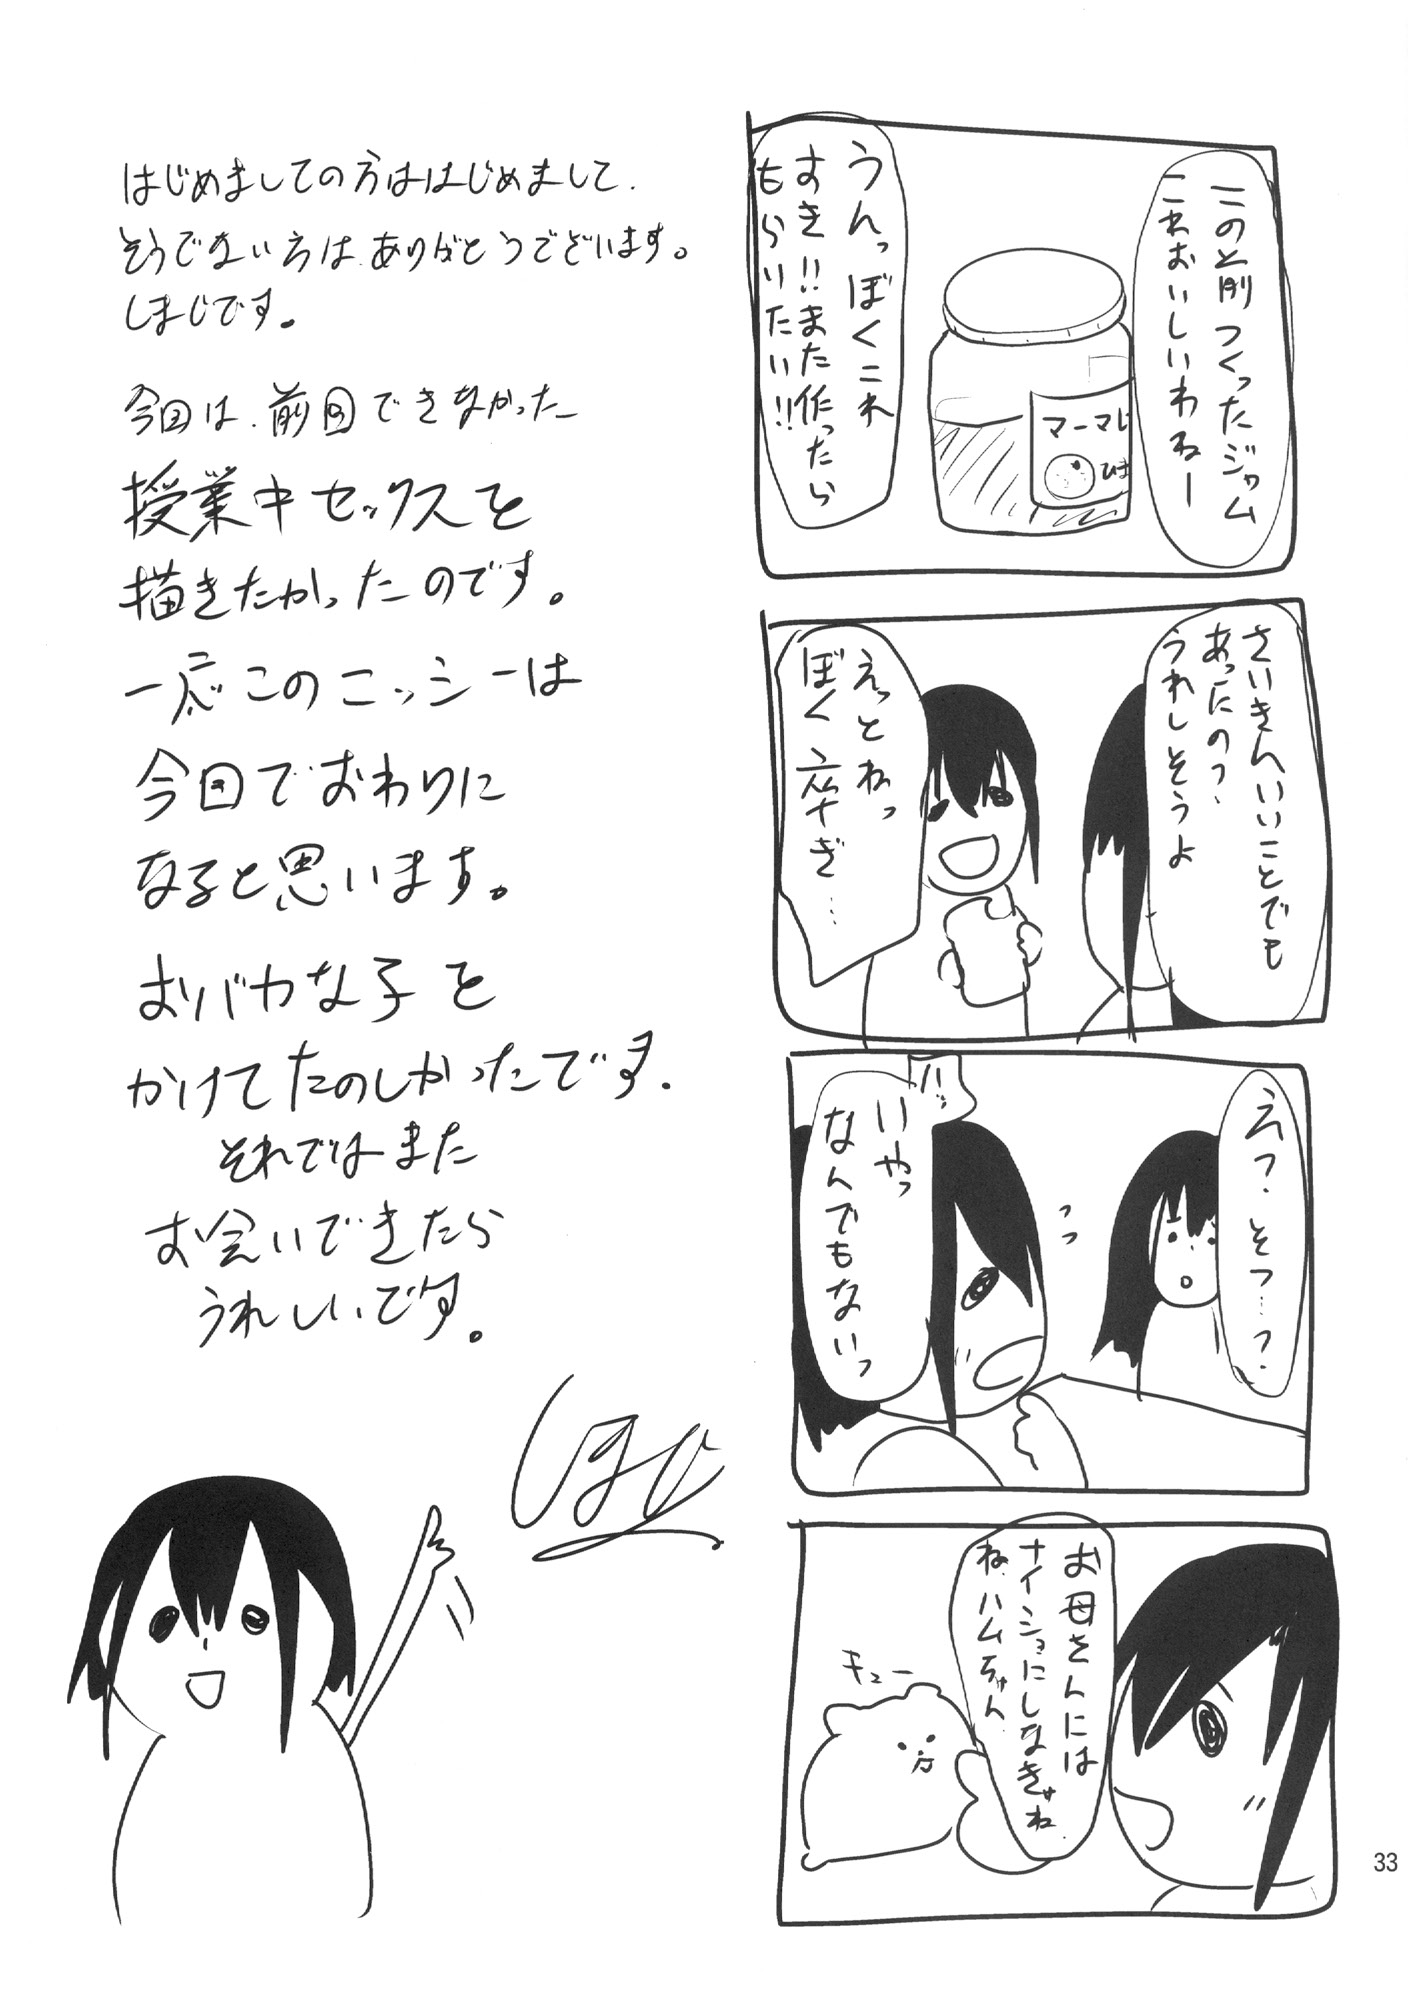 このと前つくったジャム
これおいしいわねー
うんっぼくこれ
すき!!また作ったら
もらいたい!!
マーマレ
ひま
さいきんいいことでも
あったの?
うれしそうよ
えっとねっ
ぼく 卒ぎ…
えっ?そつ…?
ハッ
いやっ
なんでもないっ
お母さんには
ナイショにしなきゃね
ね、ハムちゃん
キュー
はじめましての方ははじめまして、
そうでない方は、ありがとうでざいます。
しまじです。
今回は、前回できなかった
授業中セックスを
描きたかったのです。
一応このニッシーは
今回でおわりに
なると思います。
おバカな子を
かけてたのしかったです。
それではまた
お会いできたら
うれしいです。
しまじ
33